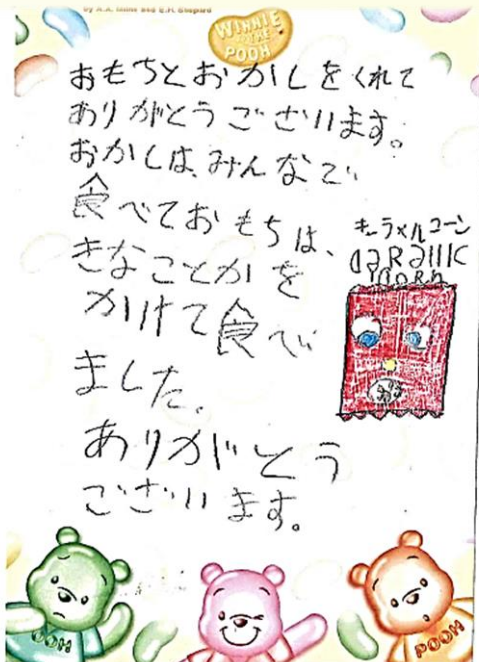 by A.A. Milne and E.H. Shepard
WINNIE
THE
POOH
おもちとおかしをくれて
ありがとうございます。
おかしは、みんなで
食べておもちは、
きなことかを
かけて食べ
ました。
ありがとう
ございます。
キャラメルコーン
caRamc
CoRn
POOH
POOH